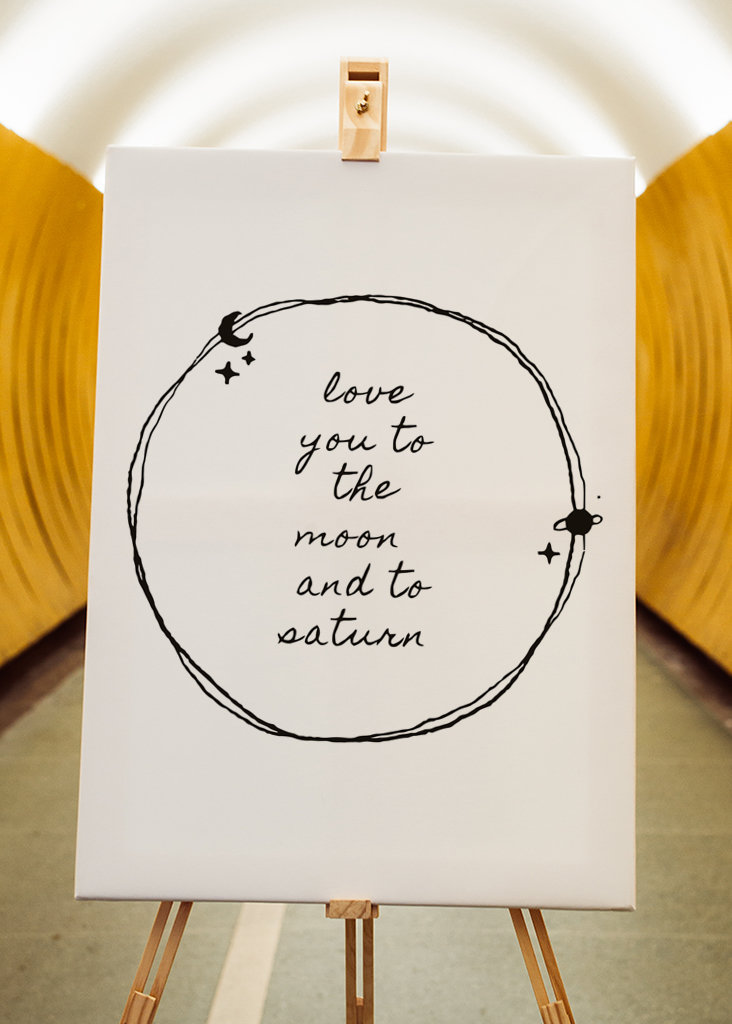 love
you to
the
moon
and to
saturn